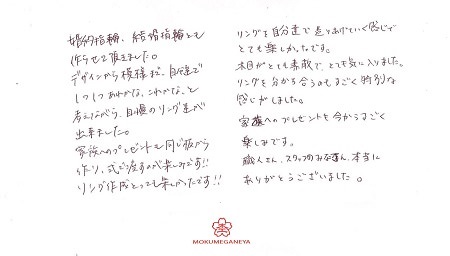 婚約指輪、結婚指輪とも
作らせて頂きました。
デザインから模様まで、自分達で
1つ1つあれかな、これかな、と
考えながら、自慢のリング達が
出来ました。
家族へのプレゼントも同じ板から
作り、式で渡すのが楽しみです!!
リング作成とっても楽しかったです!!
リングを自分達で造りあげていく感じで
とても楽しかったです。
木目がとても素敵で、とても気に入りました。
リングを分かち合うのもすごく特別な
感じがしました。
家族へのプレゼントを今からすごく
楽しみです。
職人さん、スタッフのみな様、本当に
ありがとうございました。
MOKUMEGANEYA